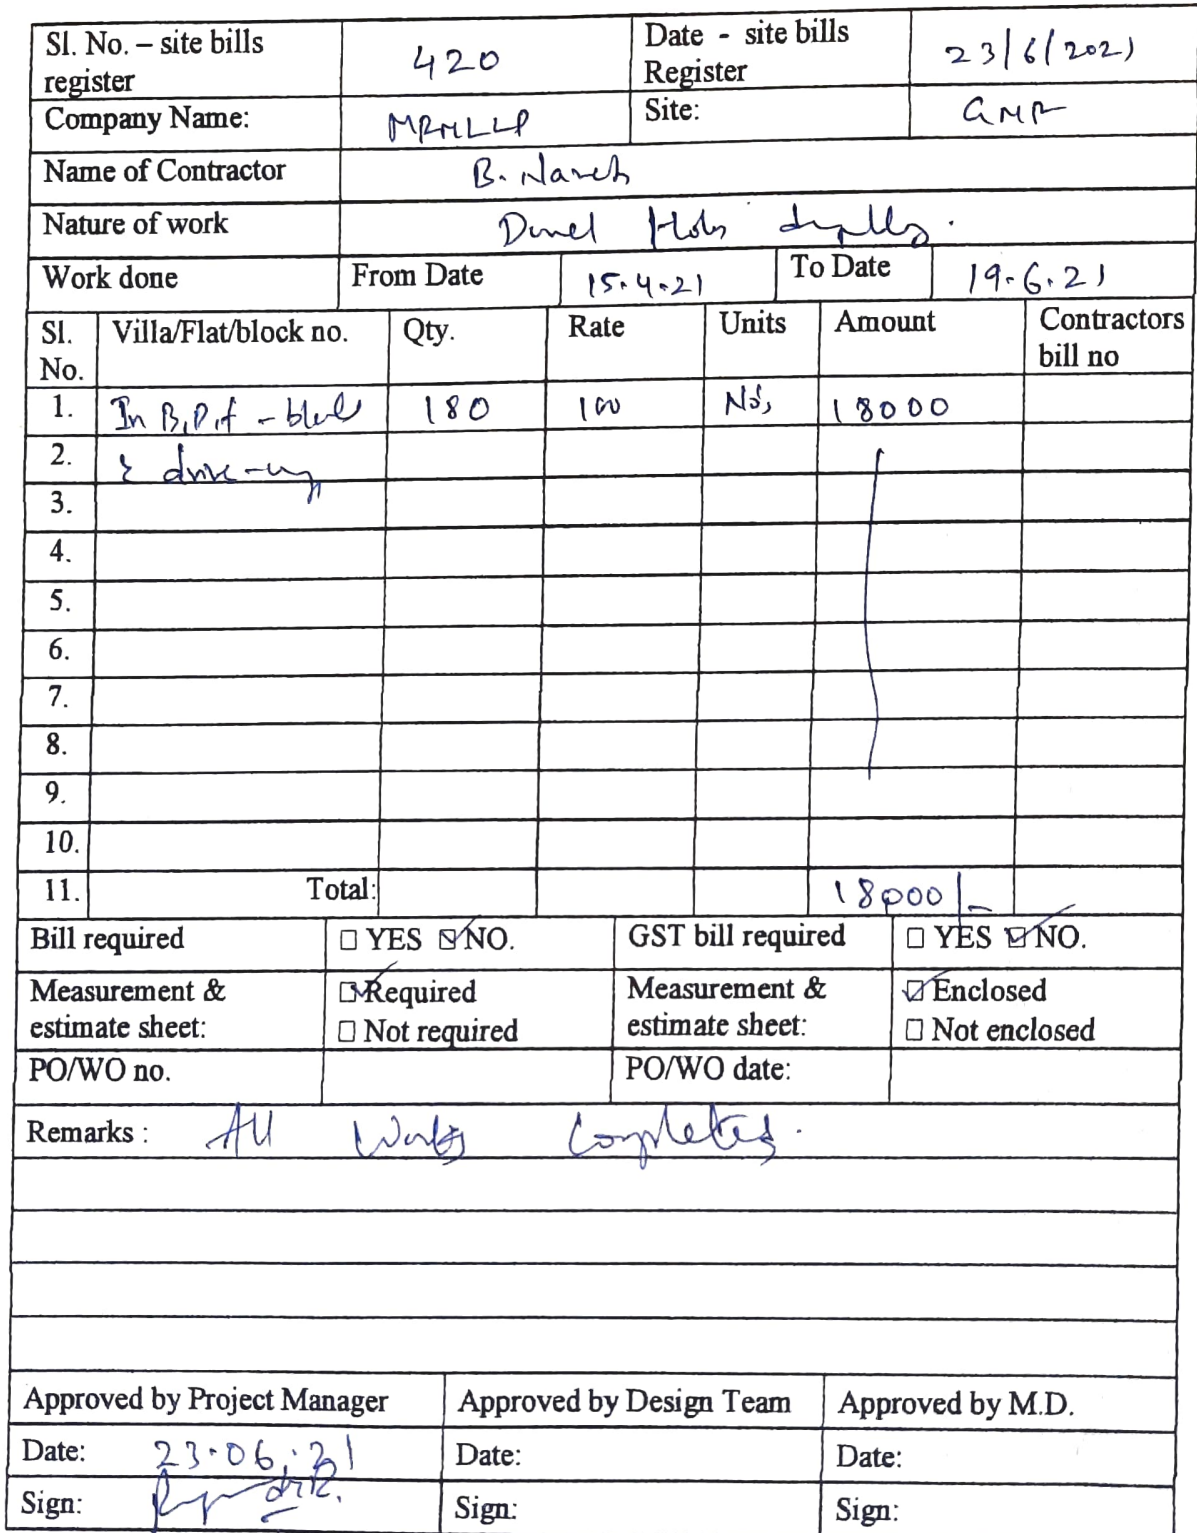 Sl. No. – site bills register 420 Date - site bills Register 23/6/2021
Company Name: MRMLLP Site: GMR
Name of Contractor B. Naresh
Nature of work Holes
Work done From Date 15.4.21 To Date 19.6.21
Sl. No. Villa/Flat/block no. Qty. Rate Units Amount Contractors bill no
1. In B,D,F - block 180 100 No's 18000
2. & drive-way
3.
4.
5.
6.
7.
8.
9.
10.
11. Total: 18000/-
Bill required ☐ YES ☑ NO. GST bill required ☐ YES ☑ NO.
Measurement & estimate sheet: ☑ Required ☐ Not required Measurement & estimate sheet: ☑ Enclosed ☐ Not enclosed
PO/WO no. PO/WO date:
Remarks : All Works Completed.
Approved by Project Manager Approved by Design Team Approved by M.D.
Date: 23.06.21 Date: Date:
Sign: Sign: Sign: